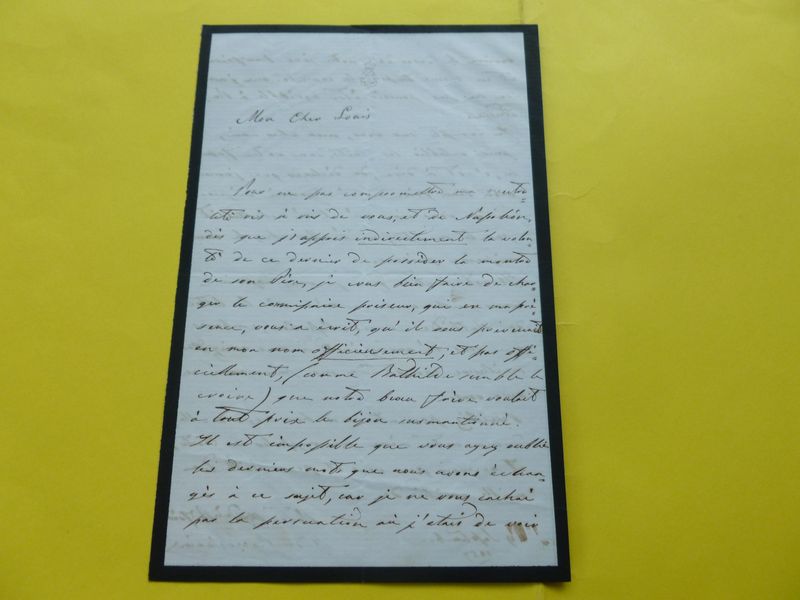 Mon Cher Louis
Pour ne pas compromettre ma neutra=
lité vis à vis de vous, et de Napoléon,
dès que j'appris indirectement la volon=
té de ce dernier de posséder la montre
de son Père, je crus bien faire de char=
ger le commissaire priseur, que en ma pré=
sence, vous a écrit, qu'il vous prévenait
en mon nom officieusement, et pas offi=
ciellement, (comme Bathilde semble le
croire) que votre beau frère voulait
à tout prix le bijou susmentionné.
Il est impossible que vous ayez oublié
les derniers mots que nous avons échan=
gés à ce sujet, car je ne vous cachai
pas la persuation où j'étais de voir